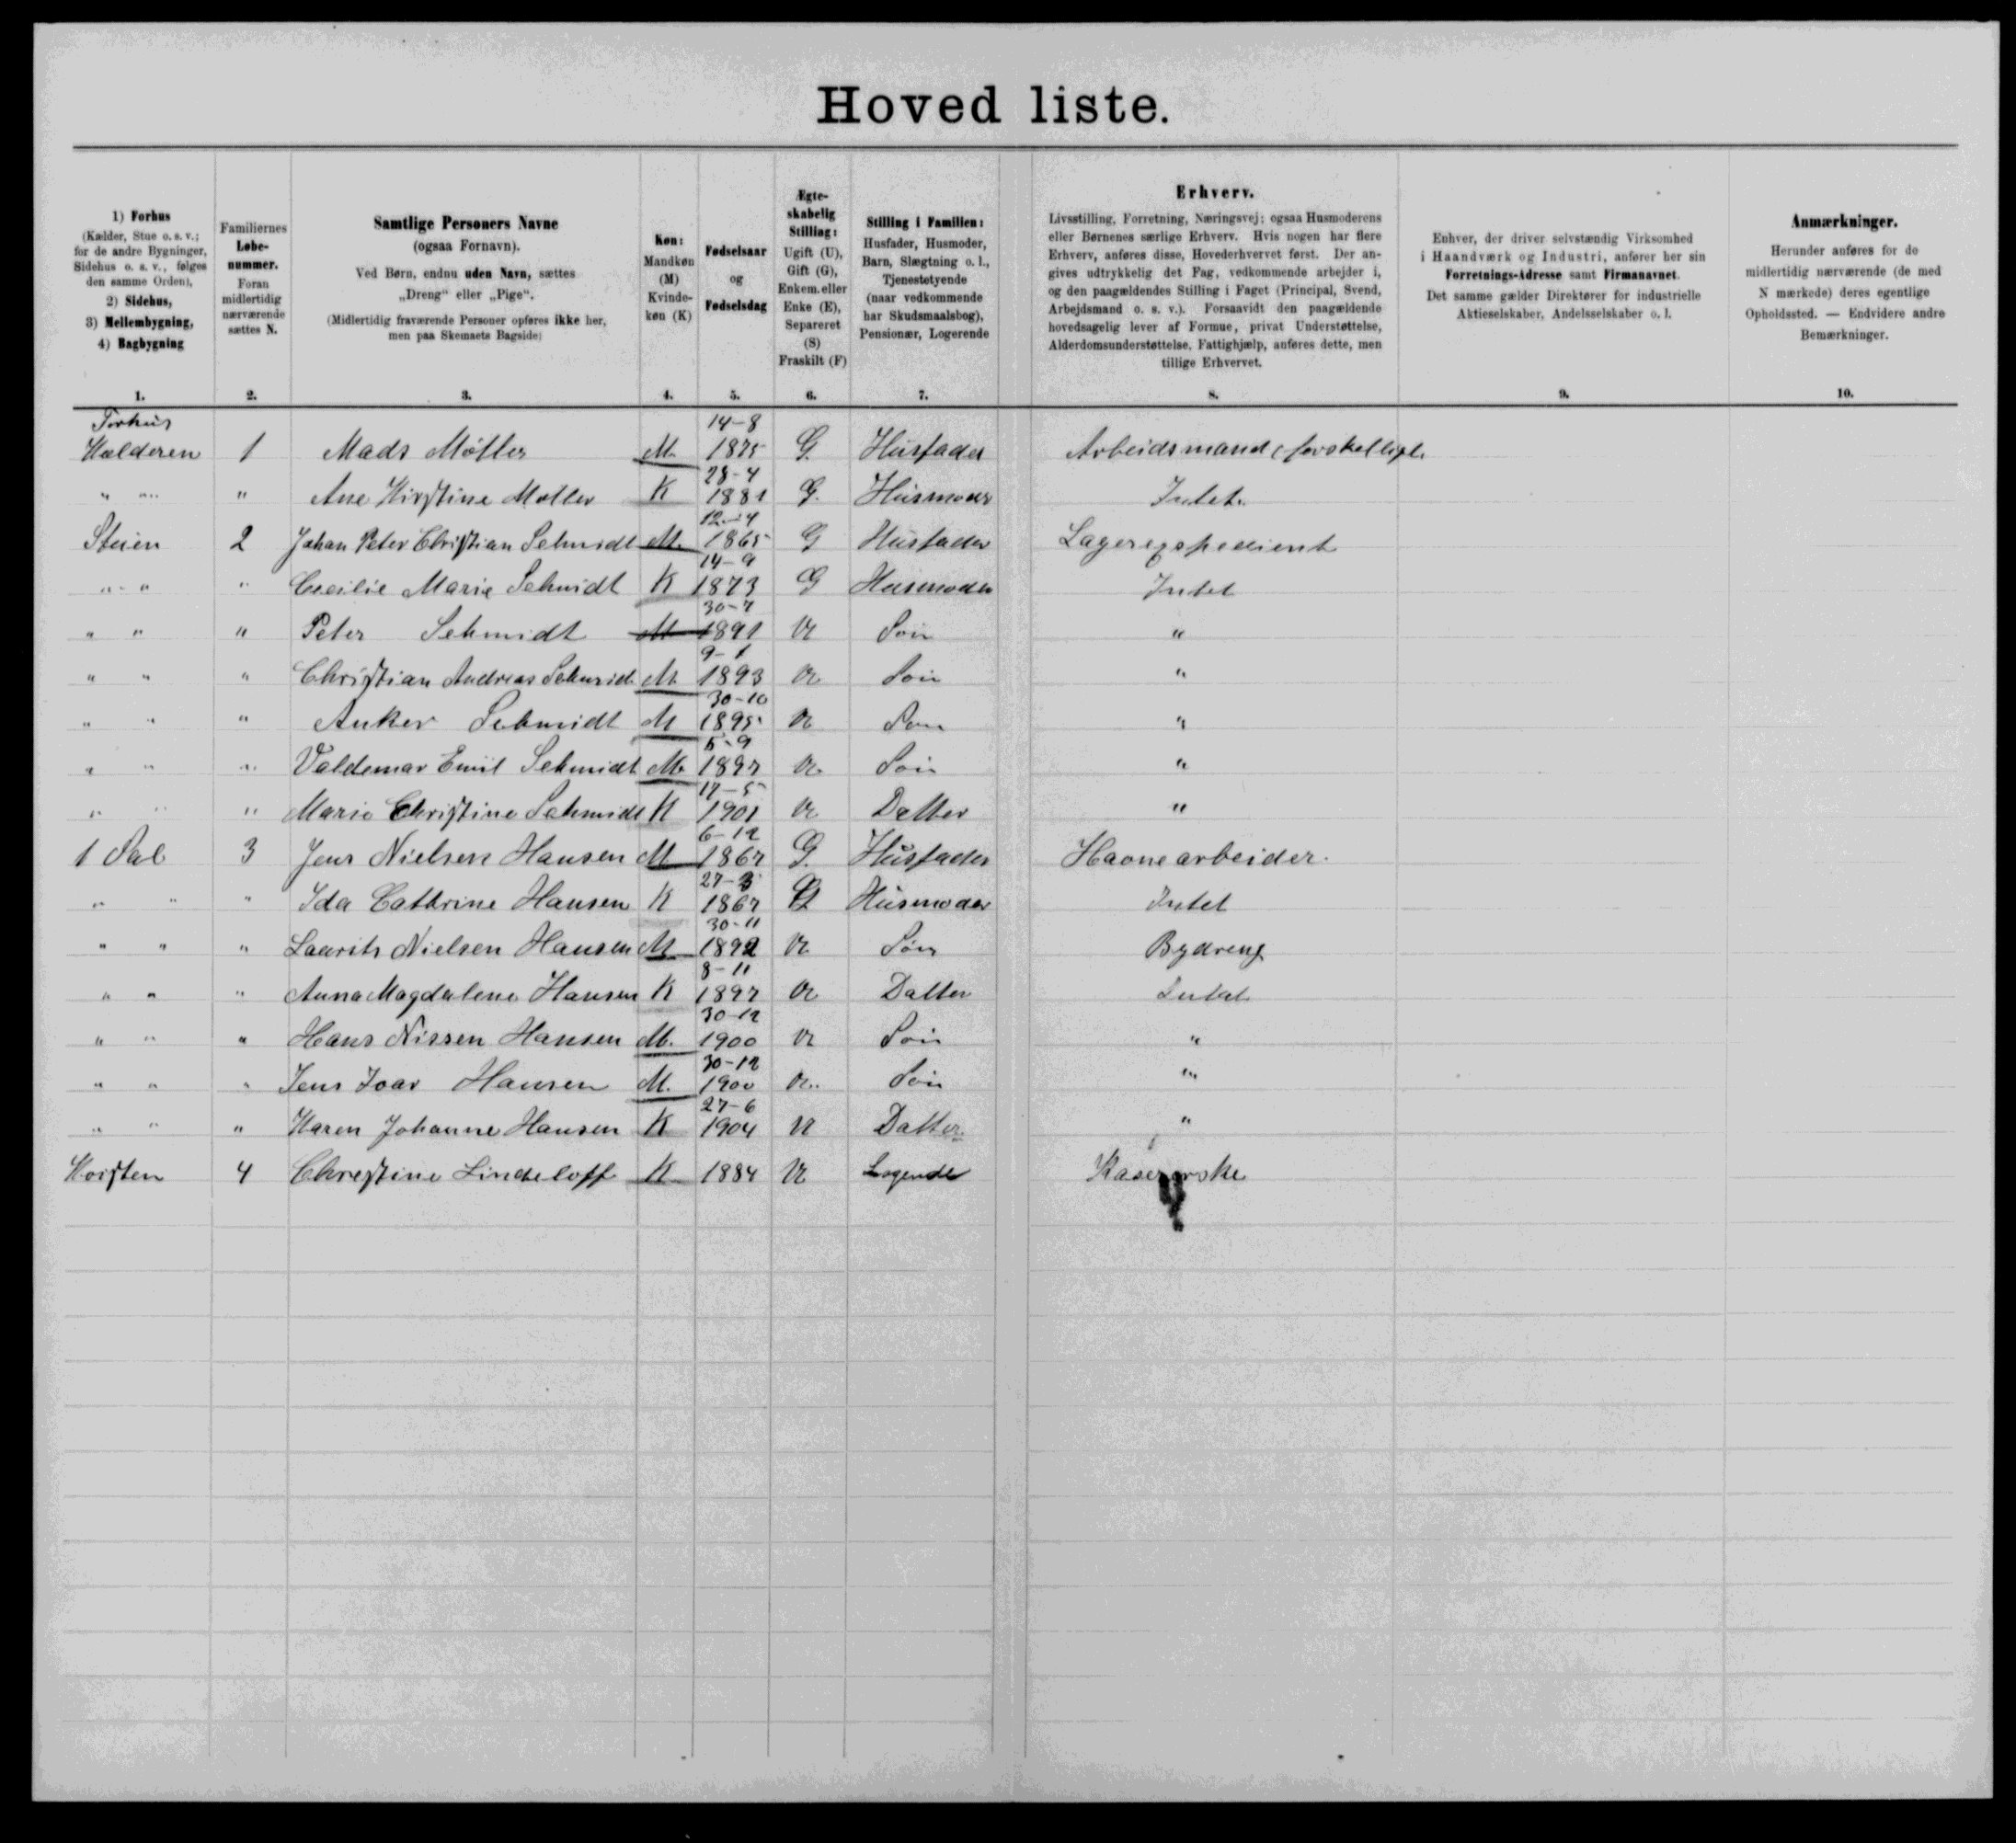 Hoved liste.
1) Forhus
(Kælder, Stue o. s. v.;
for de andre Bygninger,
Sidehus o. s. v., følges
den samme Orden),
2) Sidehus,
3) Mellembygning,
4) Bagbygning
Familiernes
Løbe-
nummer.
Foran
midlertidig
nærværende
sættes N.
Samtlige Personers Navne
(ogsaa Fornavn).
Ved Børn, endnu uden Navn, sættes
„Dreng“ eller „Pige“.
(Midlertidig fraværende Personer opføres ikke her,
men paa Skemaets Bagside)
Køn:
Mandkøn
(M)
Kvinde-
køn (K)
Fødselsaar
og
Fødselsdag
Ægte-
skabelig
Stilling:
Ugift (U),
Gift (G),
Enkem. eller
Enke (E),
Separeret
(S)
Fraskilt (F)
Stilling i Familien:
Husfader, Husmoder,
Barn, Slægtning o. l.,
Tjenestetyende
(naar vedkommende
har Skudsmaalsbog),
Pensionær, Logerende
Erhverv.
Livsstilling, Forretning, Næringsvej; ogsaa Husmoderens
eller Børnenes særlige Erhverv. Hvis nogen har flere
Erhverv, anføres disse, Hovederhvervet først. Der an-
gives udtrykkelig det Fag, vedkommende arbejder i,
og den paagældendes Stilling i Faget (Principal, Svend,
Arbejdsmand o. s. v.). Forsaavidt den paagældende
hovedsagelig lever af Formue, privat Understøttelse,
Alderdomsunderstøttelse, Fattighjælp, anføres dette, men
tillige Erhvervet.
Enhver, der driver selvstændig Virksomhed
i Haandværk og Industri, anfører her sin
Forretnings-Adresse samt Firmanavnet.
Det samme gælder Direktører for industrielle
Aktieselskaber, Andelsselskaber o. l.
Anmærkninger.
Herunder anføres for de
midlertidig nærværende (de med
N mærkede) deres egentlige
Opholdssted. — Endvidere andre
Bemærkninger.
1. 2. 3. 4. 5. 6. 7. 8. 9. 10.
Forhus 14-8
Kælderen 1 Mads Møller M. 1875 G. Husfader Arbeidsmand (forskelligt.
28-4
" " " Ane Kirstine Møller K 1881 G. Husmoder Intet.
12-4
Stuen 2 Johan Peter Christian Schmidt M. 1865 G Husfader Lagerexpedient
14-9
" " " Cecilie Marie Schmidt K 1873 G Husmoder Intet
30-7
" " " Peter Schmidt M 1891 U Søn "
9-1
" " " Christian Andreas Schmidt M 1893 U Søn "
30-10
" " " Anker Schmidt M 1895 U Søn "
5-9
" " " Valdemar Emil Schmidt M 1897 U Søn "
17-5
" " " Marie Christine Schmidt K 1901 U Datter "
6-12
1 Sal 3 Jens Nielsen Hansen M 1867 G. Husfader Havnearbeider.
27-3
" " " Ida Cathrine Hansen K 1867 G Husmoder Intet
30-11
" " " Laurits Nielsen Hansen M 1892 U Søn Bydreng
8-11
" " " Anna Magdalene Hansen K 1897 U Datter Intet
30-12
" " " Hans Nissen Hansen M. 1900 U Søn "
30-12
" " " Jens Ivar Hansen M. 1900 U. Søn "
27-6
" " " Karen Johanne Hansen K 1904 U Datter "
Kvisten 4 Christine Lindeloff K 1884 U Logende